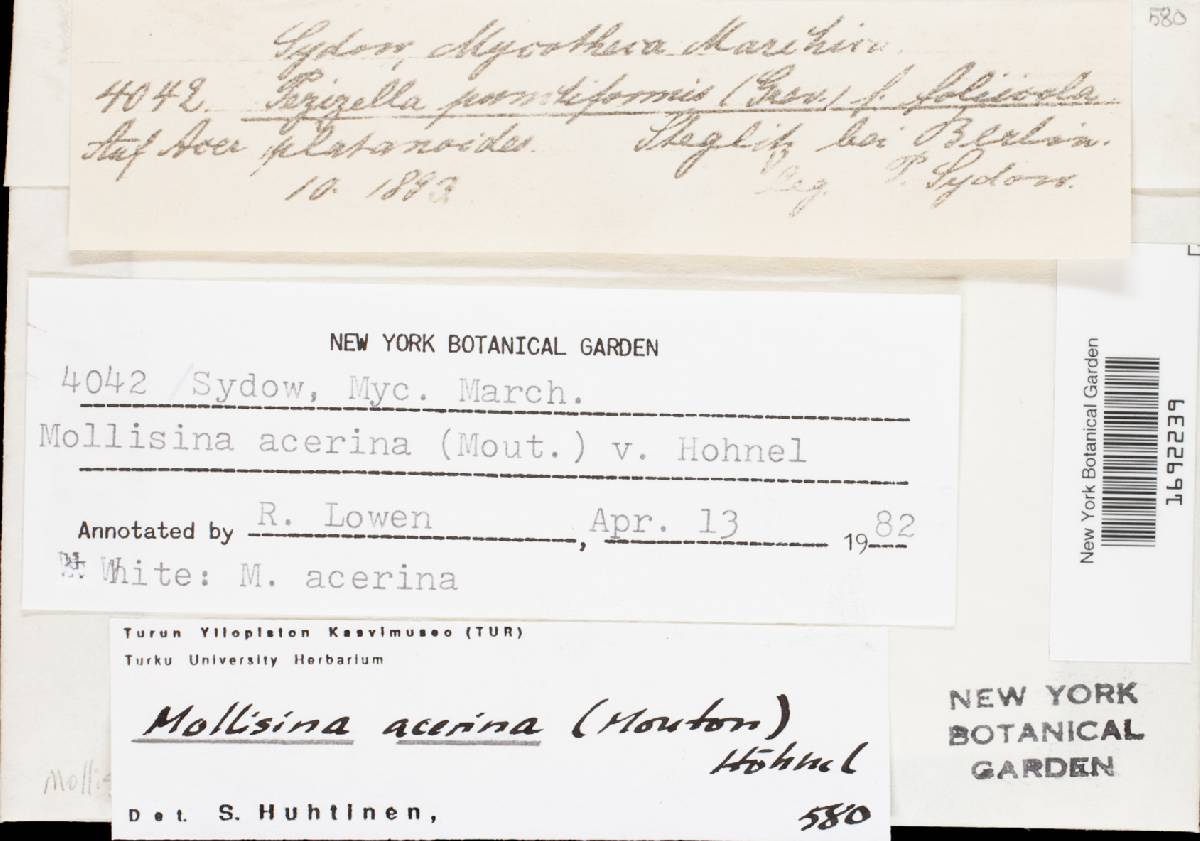 580
Sydow, Mycotheca Marchica.
4042 Pezizella punctiformis (Grev.) f. foliicola
Auf Acer platanoides. Steglitz bei Berlin.
10. 1893 Leg. P. Sydow.
NEW YORK BOTANICAL GARDEN
4042 / Sydow, Myc. March.
Mollisina acerina (Mout.) v. Hohnel
Annotated by R. Lowen, Apr. 13 1982
White: M. acerina
New York Botanical Garden
1692239
Turun Yliopiston Kasvimuseo (TUR)
Turku University Herbarium
Mollisina acerina (Mouton)
Höhnel
Det. S. Huhtinen,
580
NEW YORK
BOTANICAL
GARDEN
Mollis